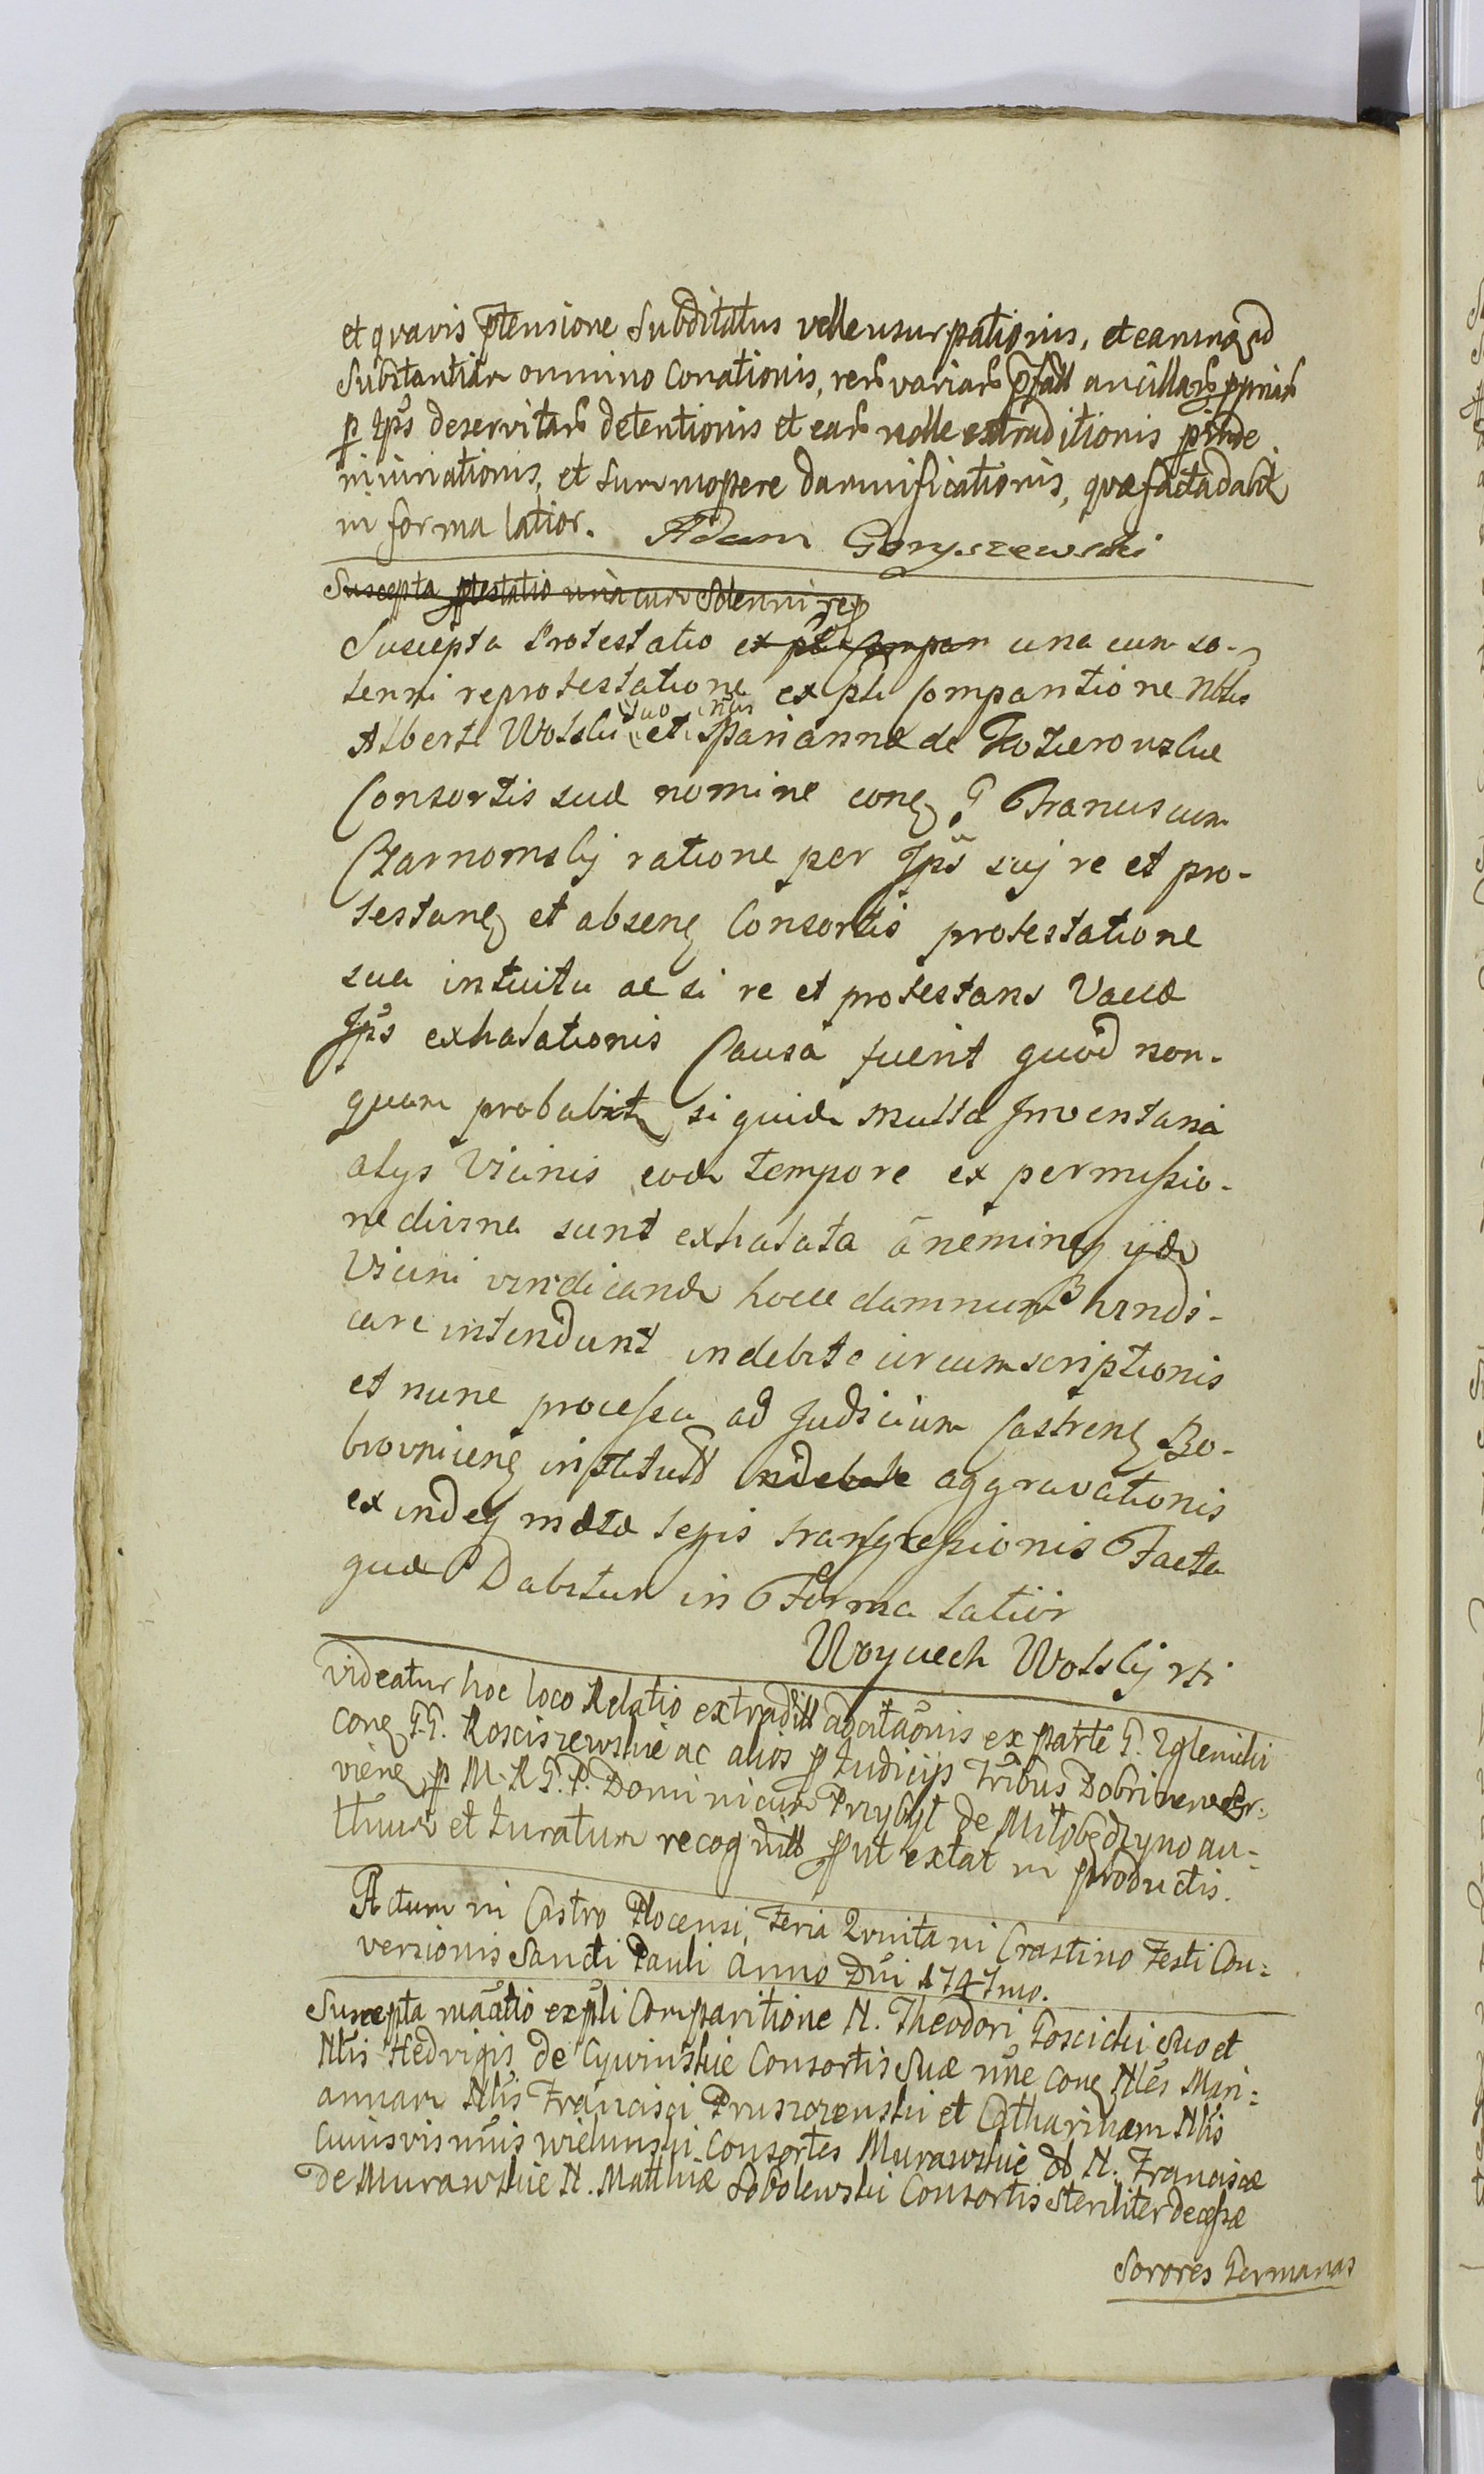 et qvavis ptensione Subditatus velle usurpationis, et earumq ad
Substantiam omnino Conationis, rerum variarum ancillarum ppriarum
p Ips deservitarum detentionis et earum nolle extraditionis pinde
iniuriationis, et summopere damnificationis, qvæ facta dabit
in forma latior. Adam Goryszewski
Suscepta ptestatio una cum Solenni rep
Suscepta Protestatio ex pli Compar una cum so-
lenni reprotestatione ex pli Compantione Nblis
Alberti Wolski suo et Marianna de
Consortis sua nomine conq G Franciscum
Czarnomskij ratione per Ips suj re et pro-
testanq et absenq Consortis protestatione
sua intuitu ac si re et protestans Vacca
Ips exhalationis Causa fuerit quod non-
quam probabit, si quidem multa Inventaria
alys Vicinis eodem tempore ex permissio-
ne divina sunt exhalata a nemineq ijdem
Vicini vindicandi hocce damnum vindi-
care intendunt indebite circumscriptionis
et nunc processu ad Judicium Castrenq Bo-
brovnicenq institudd indebite aggravationis
ex indeq metæ legis transgressionis Facta
quæ Dabitur in Forma latior
Woyciech Wolskij
videatur hoc loco Relatio extradill adcitaonis ex parte G. Zglenicki
conq GG. Rosciszewskie ac alios p Judicijs Tribus Dobrinen
vienq p M. R G. P. Dominicum Przybyt de Miłobędzyno au-
tthum et Juratum recognill put extat in productis.
Actum in Castro Plocensi, Feria Qvinta in Crastino Festi Con-
versionis Sancti Pauli Anno Dni 1747mo.
Suscepta maatio expli Comparitione N. Theodori Goscicki Suo et
Nlis Hedvigis de Cywinskie Consortis Suæ nne conq Nles Mari-
annam Nlis Francisci Pruszczenski et Catharinam Nlis
Cuiusvis nnis wielunski Consortes Murawskie et N. Franciscæ
de Murawskie N. Matthiæ Sobolewski Consortis steriliter decessæ
Sorores Germanas